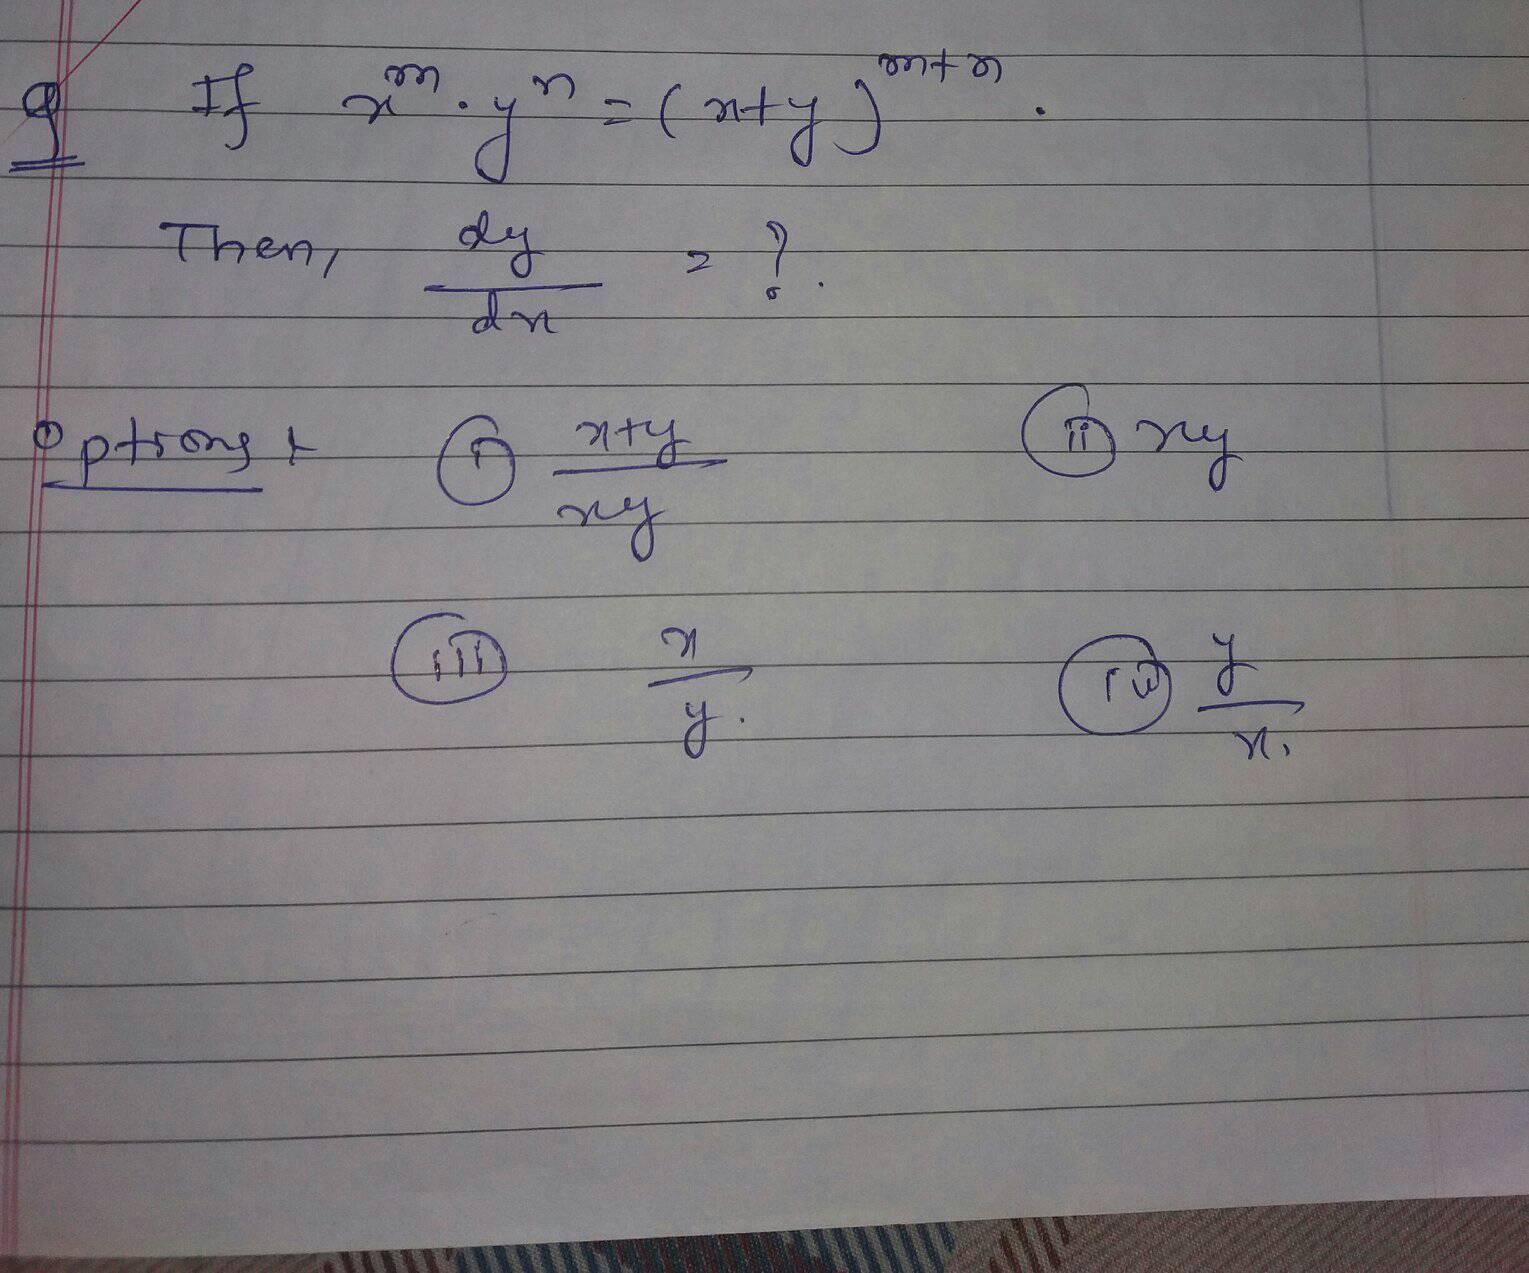 Q If x^m . y^n = (x+y)^m+n .
Then, dy/dx = ?.
Options :
i x+y/xy
ii xy
iii x/y.
iv y/x.